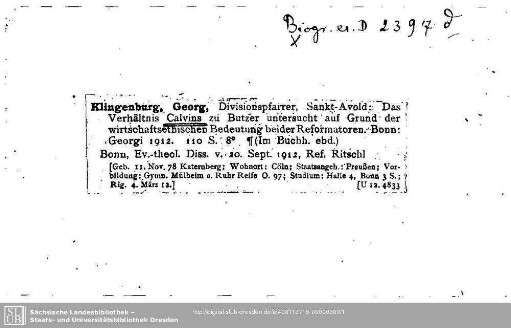 Biogr. er. D 2397 d
Klingenburg, Georg, Divisionspfarrer, Sankt-Avold: Das
Verhältnis Calvins zu Butzer untersucht auf Grund der
wirtschaftsethischen Bedeutung beider Reformatoren. Bonn:
Georgi 1912. 110 S. 8° ¶ (Im Buchh. ebd.)
Bonn, Ev.-theol. Diss. v. 20. Sept. 1912, Ref. Ritschl
[Geb. 11. Nov. 78 Katernberg; Wohnort: Cöln; Staatsangeh.: Preußen; Vor-
bildung: Gymn. Mülheim a. Ruhr Reife O. 97; Studium: Halle 4, Bonn 3 S.;
Rig. 4. März 12.] [U 12. 4833
Sächsische Landesbibliothek –
Staats- und Universitätsbibliothek Dresden